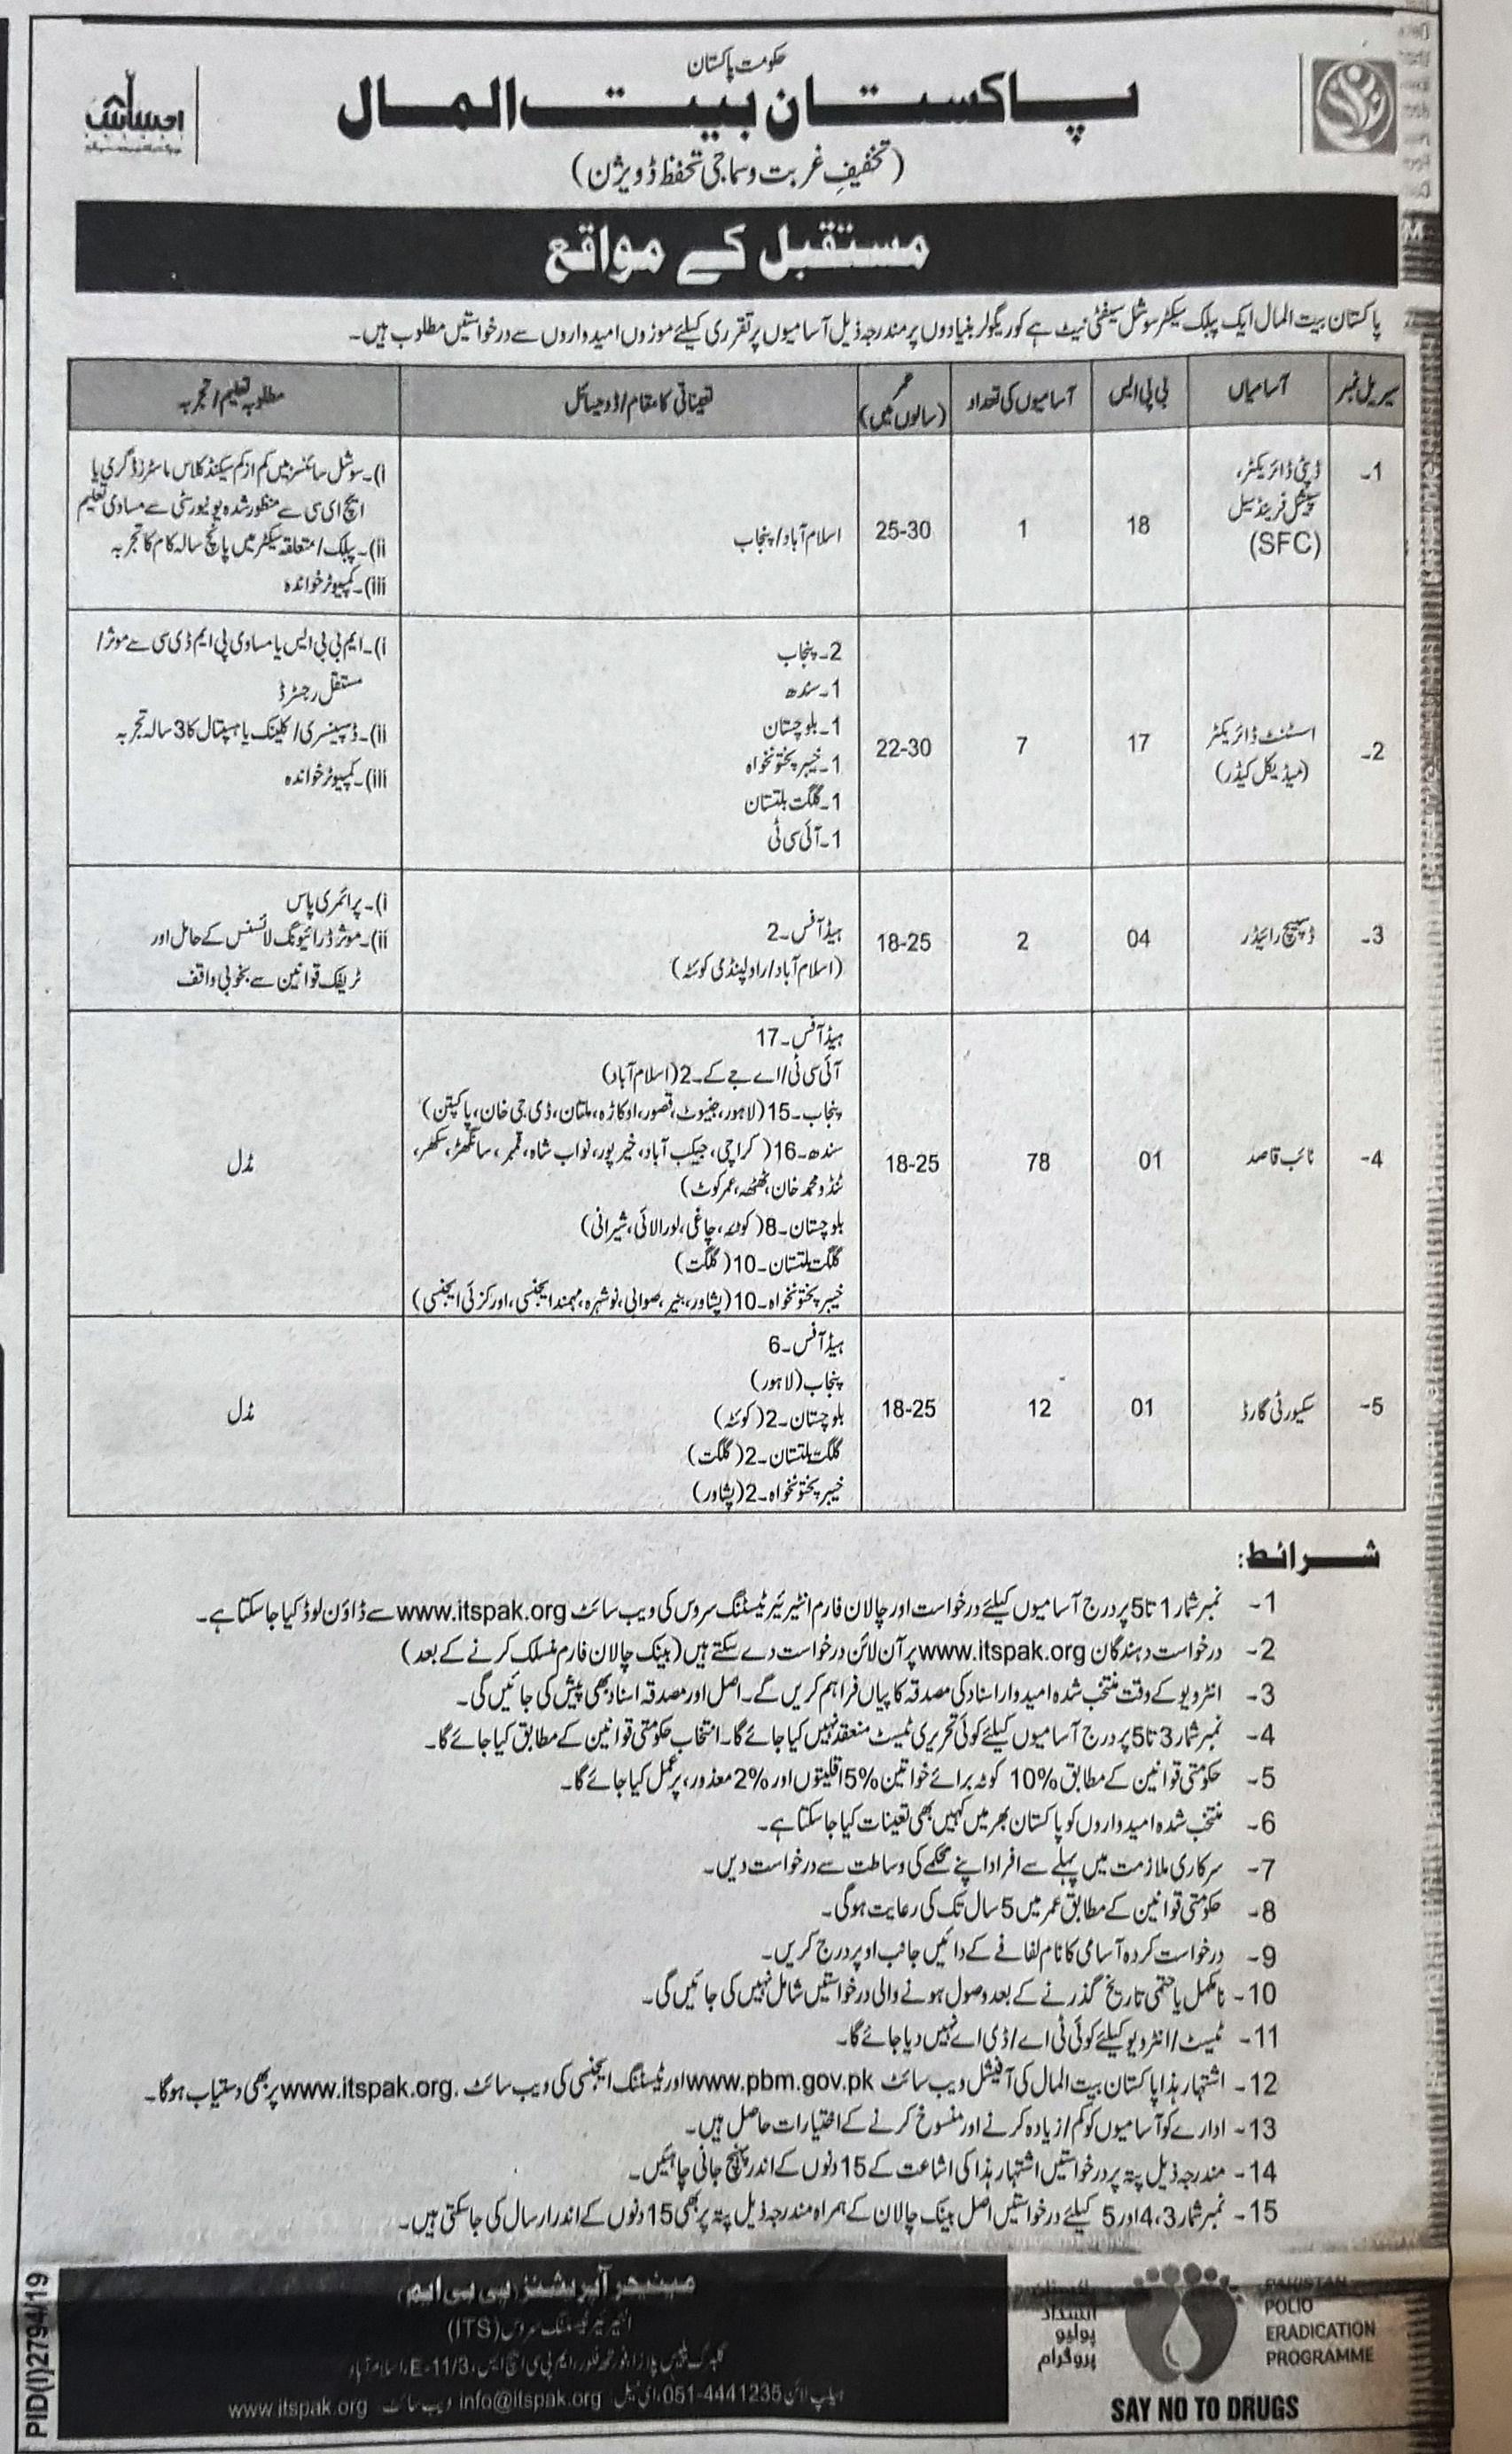 حکومت پاکستان
پاکستان بیت المال
احساس
(تخفیفِ غربت و سماجی تحفظ ڈویژن)
مستقبل کے مواقع
پاکستان بیت المال ایک پبلک سیکٹر سوشل سیفٹی نیٹ ہے کو ریگولر بنیادوں پر مندرجہ ذیل آسامیوں پر تقرری کیلئے موزوں امیدواروں سے درخواستیں مطلوب ہیں۔
سیریل نمبر آسامیاں بی پی ایس آسامیوں کی تعداد عمر (سالوں میں) تعیناتی کا مقام/ڈومیسائل مطلوبہ تعلیم/تجربہ
1۔ ڈپٹی ڈائریکٹر، سپیشل فرینڈ سیل (SFC) 18 1 25-30 اسلام آباد/پنجاب
i)۔ سوشل سائنسز میں کم از کم سیکنڈ کلاس ماسٹرز ڈگری یا
ایچ ای سی سے منظور شدہ یونیورسٹی سے مساوی تعلیم
ii)۔ پبلک/متعلقہ سیکٹر میں پانچ سالہ کام کا تجربہ
iii)۔ کمپیوٹر خواندہ
2۔ اسسٹنٹ ڈائریکٹر (میڈیکل کیڈر) 17 7 22-30
2۔ پنجاب
1۔ سندھ
1۔ بلوچستان
1۔ خیبر پختونخواہ
1۔ گلگت بلتستان
1۔ آئی سی ٹی
i)۔ ایم بی بی ایس یا مساوی پی ایم ڈی سی سے موثر/
مستقل رجسٹرڈ
ii)۔ ڈسپینسری/کلینک یا ہسپتال کا 3 سالہ تجربہ
iii)۔ کمپیوٹر خواندہ
3۔ ڈسپیچ رائیڈر 04 2 18-25
ہیڈ آفس۔2
(اسلام آباد/راولپنڈی کوئٹہ)
i)۔ پرائمری پاس
ii)۔ موثر ڈرائیونگ لائسنس کے حامل اور
ٹریفک قوانین سے بخوبی واقف
4- نائب قاصد 01 78 18-25
ہیڈ آفس۔17
آئی سی ٹی/اے جے کے۔2 (اسلام آباد)
پنجاب۔15 (لاہور، چنیوٹ، قصور، اوکاڑہ، ملتان، ڈی جی خان، پاکپتن)
سندھ۔16 (کراچی، جیکب آباد، خیر پور، نواب شاہ، قمبر، سانگھڑ، سکھر،
ٹنڈو محمد خان، ٹھٹھہ، عمر کوٹ)
بلوچستان۔8 (کوئٹہ، چاغی، لورالائی، شیرانی)
گلگت بلتستان۔10 (گلگت)
خیبر پختونخواہ۔10 (پشاور، بنیر، صوابی، نوشہرہ، مہمند ایجنسی، اورکزئی ایجنسی)
مڈل
5- سکیورٹی گارڈ 01 12 18-25
ہیڈ آفس۔6
پنجاب (لاہور)
بلوچستان۔2 (کوئٹہ)
گلگت بلتستان۔2 (گلگت)
خیبر پختونخواہ۔2 (پشاور)
مڈل
شرائط:
1- نمبر شمار 1 تا 5 پر درج آسامیوں کیلئے درخواست اور چالان فارم انٹیریئر ٹیسٹنگ سروس کی ویب سائٹ www.itspak.org سے ڈاؤن لوڈ کیا جا سکتا ہے۔
2- درخواست دہندگان www.itspak.org پر آن لائن درخواست دے سکتے ہیں (بینک چالان فارم منسلک کرنے کے بعد)
3- انٹرویو کے وقت منتخب شدہ امیدوار اسناد کی مصدقہ کاپیاں فراہم کریں گے۔ اصل اور مصدقہ اسناد بھی پیش کی جائیں گی۔
4- نمبر شمار 3 تا 5 پر درج آسامیوں کیلئے کوئی تحریری ٹیسٹ منعقد نہیں کیا جائے گا۔ انتخاب حکومتی قوانین کے مطابق کیا جائے گا۔
5- حکومتی قوانین کے مطابق 10% کوٹہ برائے خواتین 5% اقلیتوں اور 2% معذور، پر عمل کیا جائے گا۔
6- منتخب شدہ امیدواروں کو پاکستان بھر میں کہیں بھی تعینات کیا جا سکتا ہے۔
7- سرکاری ملازمت میں پہلے سے افراد اپنے محکمے کی وساطت سے درخواست دیں۔
8- حکومتی قوانین کے مطابق عمر میں 5 سال تک کی رعایت ہوگی۔
9- درخواست کردہ آسامی کا نام لفافے کے دائیں جانب اوپر درج کریں۔
10- نامکمل یا حتمی تاریخ گذرنے کے بعد وصول ہونے والی درخواستیں شامل نہیں کی جائیں گی۔
11- ٹیسٹ/انٹرویو کیلئے کوئی ٹی اے/ڈی اے نہیں دیا جائے گا۔
12- اشتہار ہذا پاکستان بیت المال کی آفیشل ویب سائٹ www.pbm.gov.pk اور ٹیسٹنگ ایجنسی کی ویب سائٹ www.itspak.org. پر بھی دستیاب ہوگا۔
13- ادارے کو آسامیوں کو کم/زیادہ کرنے اور منسوخ کرنے کے اختیارات حاصل ہیں۔
14- مندرجہ ذیل پتہ پر درخواستیں اشتہار ہذا کی اشاعت کے 15 دنوں کے اندر پہنچ جانی چاہئیں۔
15- نمبر شمار 3، 4 اور 5 کیلئے درخواستیں اصل بینک چالان کے ہمراہ مندرجہ ذیل پتہ پر بھی 15 دنوں کے اندر ارسال کی جا سکتی ہیں۔
مینیجر آپریشنز (پی بی ایم)
انٹیریئر ٹیسٹنگ سروس (ITS)
گلبرگ پلازا، فورتھ فلور، ایم پی سی ایچ ایس، E-11/3، اسلام آباد
ہیلپ لائن 051-4441235، ای میل info@itspak.org ویب سائٹ www.itspak.org
PID(I)2794/19
پاکستان
انسداد
پولیو
پروگرام
PAKISTAN
POLIO
ERADICATION
PROGRAMME
SAY NO TO DRUGS